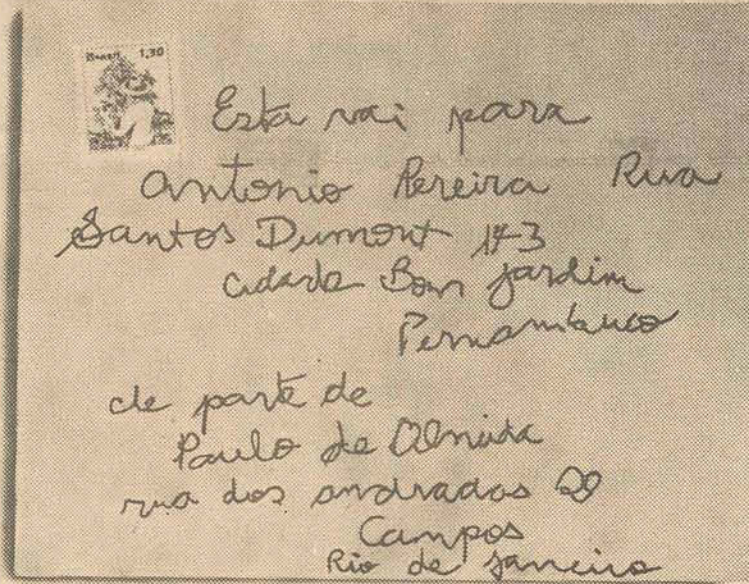 Brasil 1,30
Esta vai para
Antonio Pereira Rua
Santos Dumont 173
cidade Bom jardim
Pernambuco
de parte de
Paulo de Almida
rua dos andradas 20
Campos
Rio de janeiro